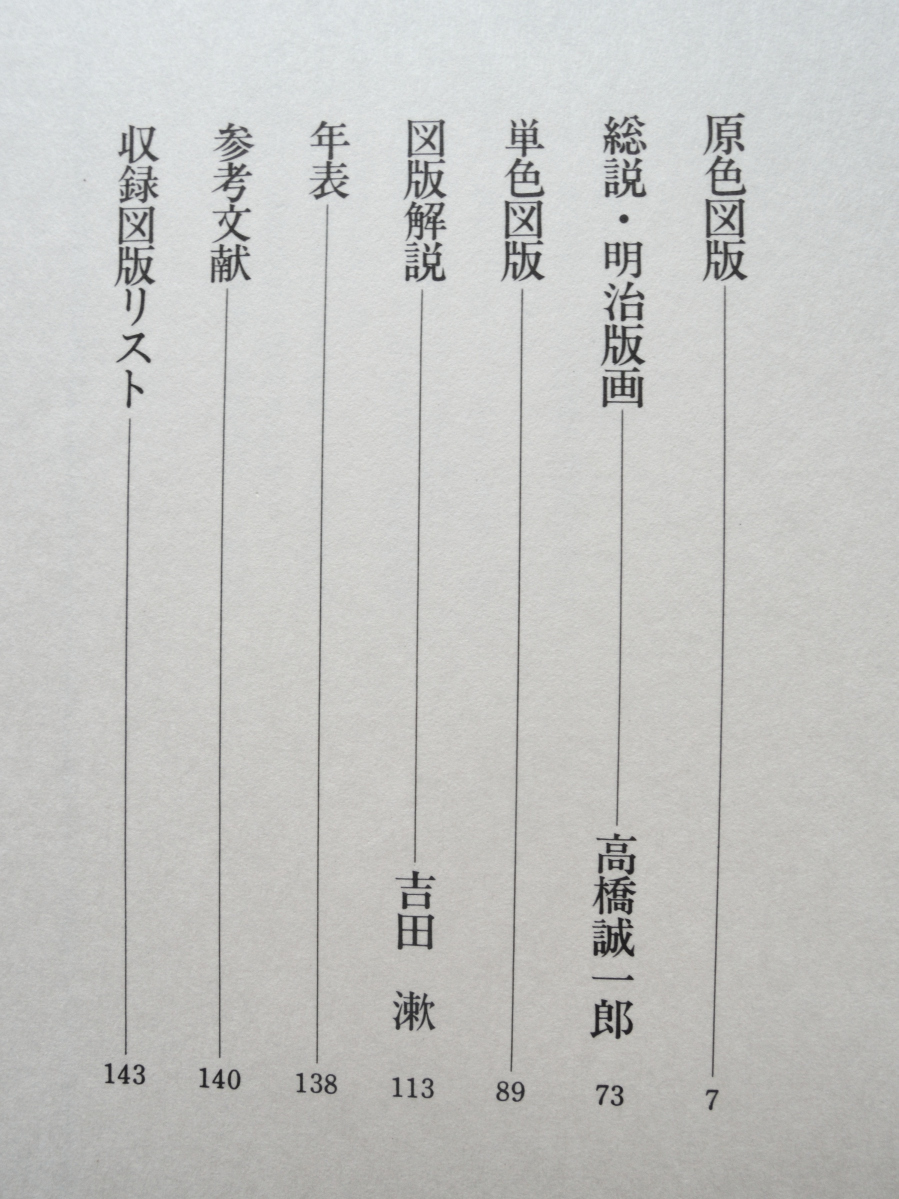 原色図版 7
総説・明治版画 高橋誠一郎 73
単色図版 89
図版解説 吉田 漱 113
年表 138
参考文献 140
収録図版リスト 143